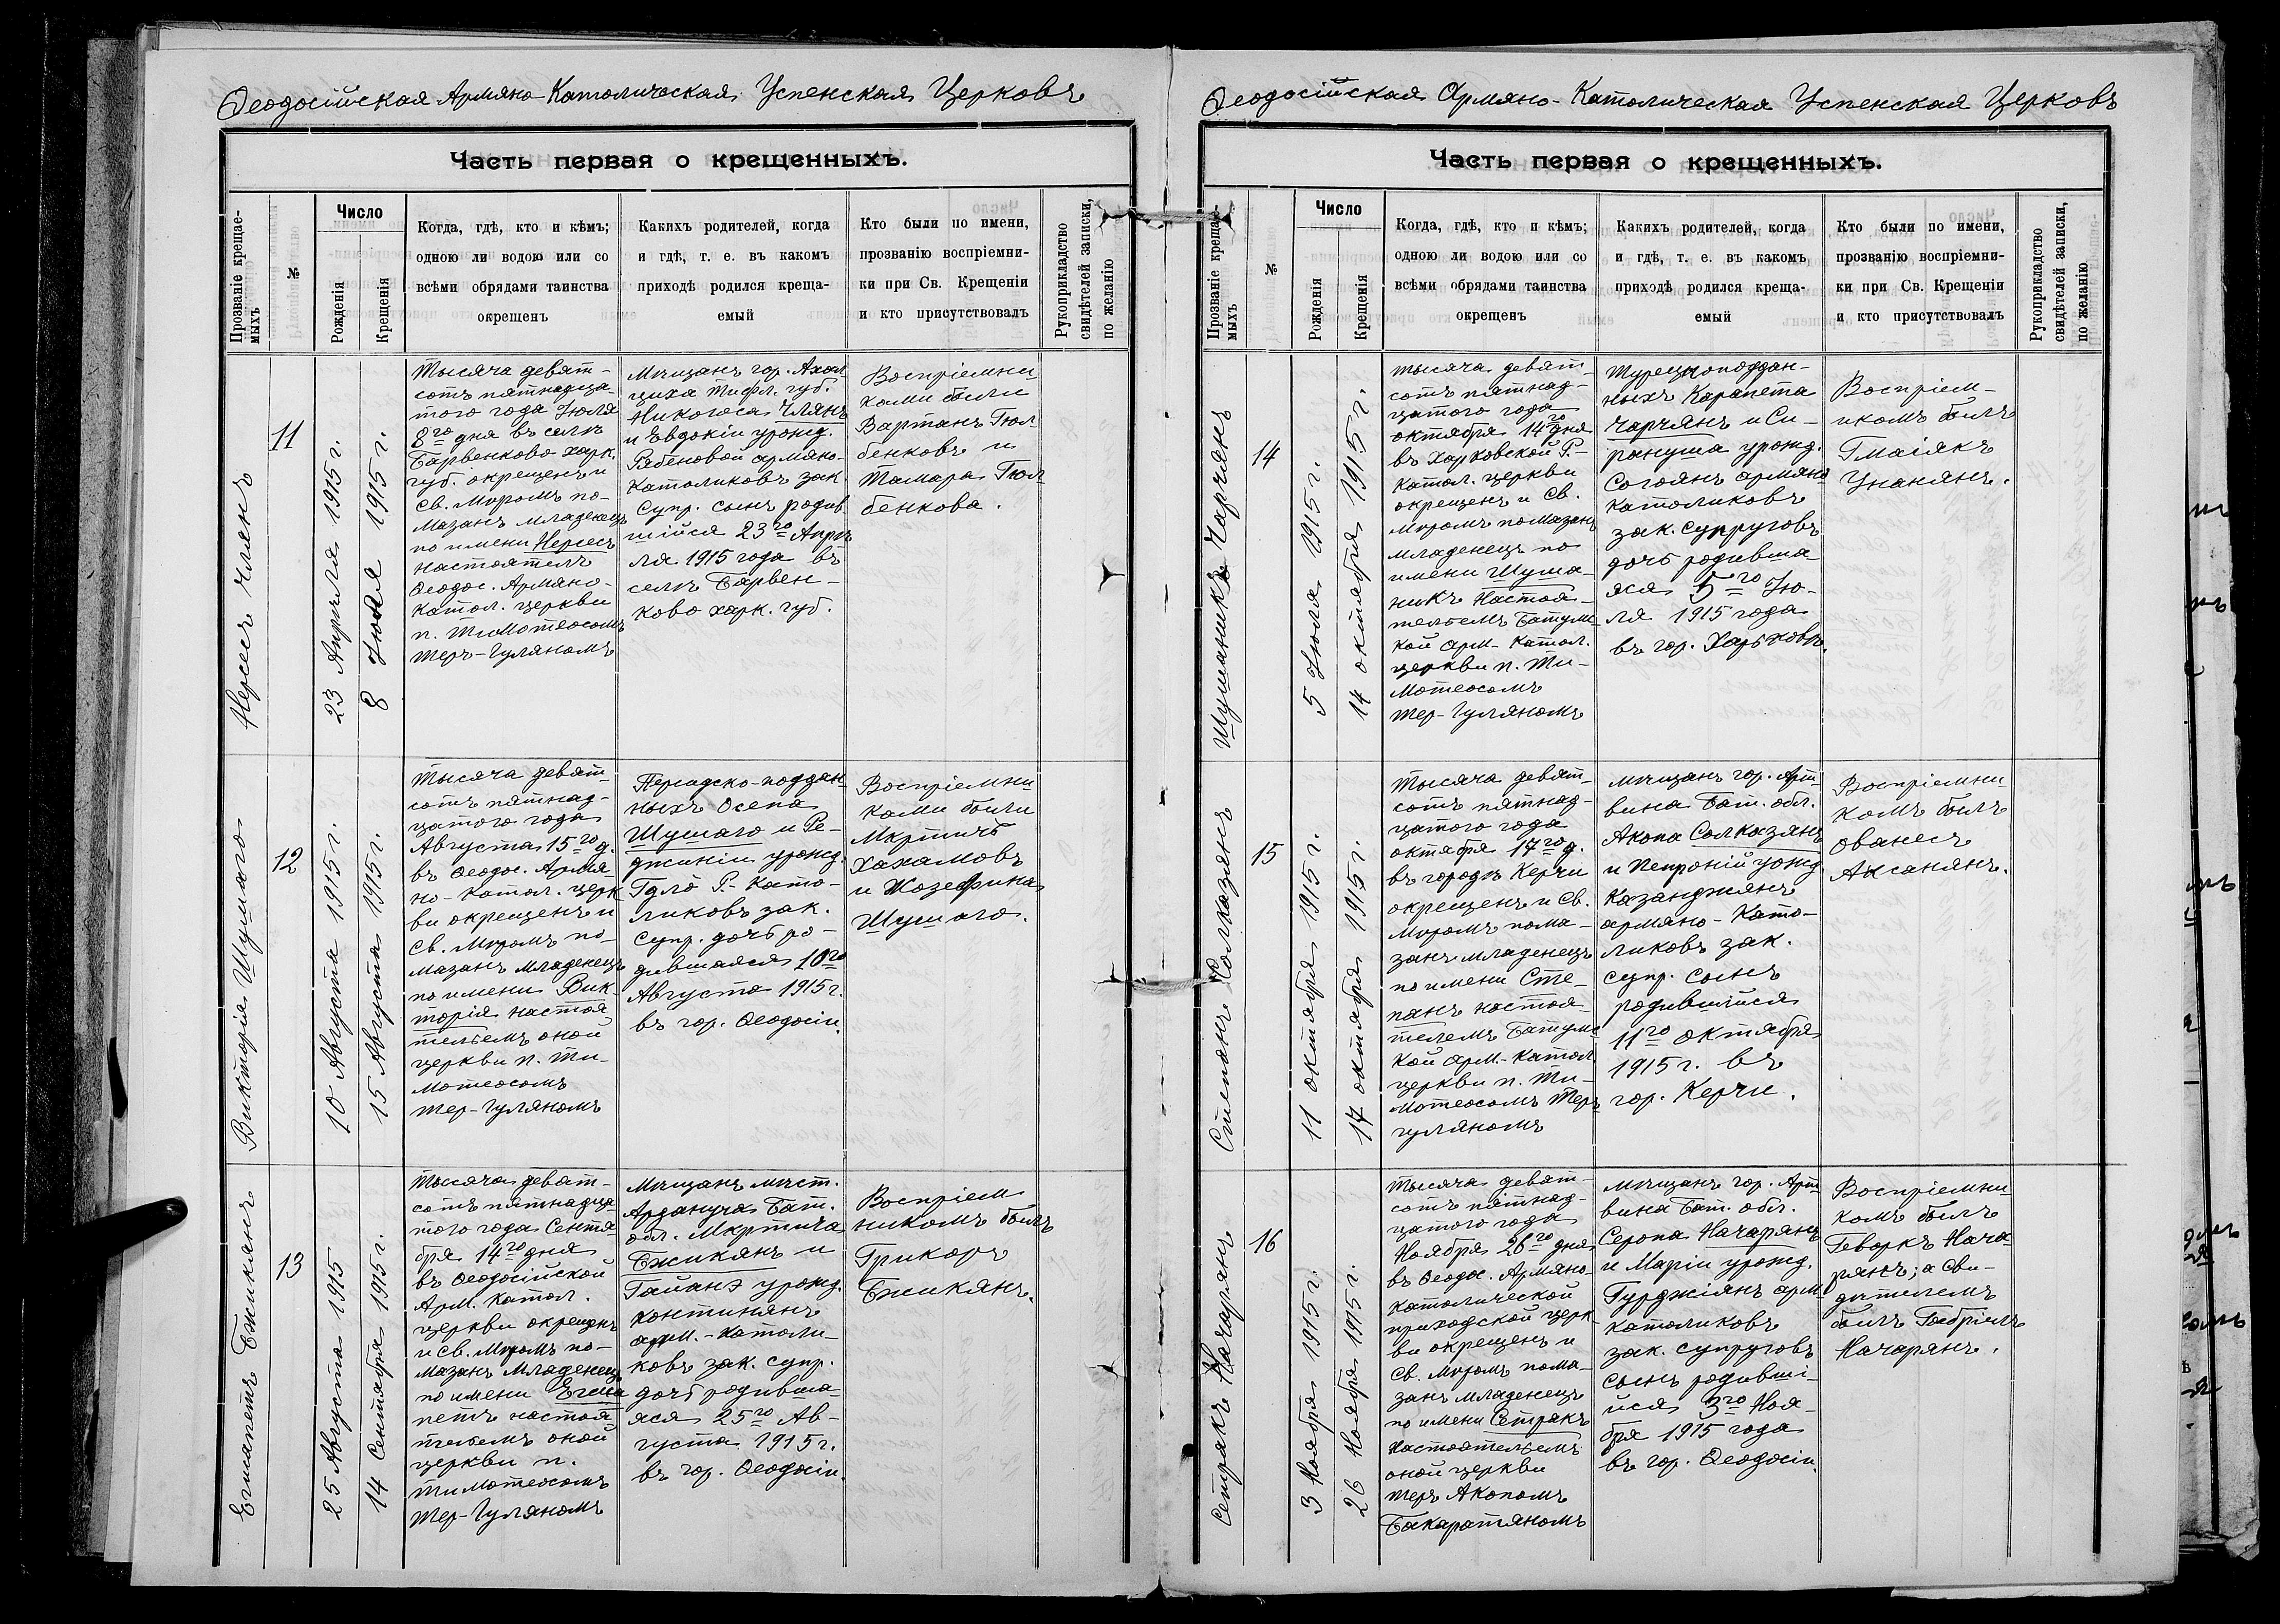 Ѳеодосійская Армяно-Католическая Успенская Церковь
Часть первая о крещенныхъ.
Прозваніе крещаемыхъ
№
Число
Рожденія
Крещенія
Когда, гдѣ, кто и кѣмъ;
одною ли водою или со
всѣми обрядами таинства
окрещенъ
Какихъ родителей, когда
и гдѣ, т. е. въ какомъ
приходѣ родился креща-
емый
Кто были по имени,
прозванію воспріемни-
ки при Св. Крещеніи
и кто присутствовалъ
Рукоприкладство
свидѣтелей записки,
по желанію
Нерсес Члянъ
11
23 Апрѣля 1915 г.
8 Іюля 1915 г.
Тысяча девят-
сотъ пятнадца-
того года Іюля
8го дня въ селѣ
Барвенково Харк.
губ. окрещенъ и
св. Муромъ по-
мазанъ младенецъ
по имени Нерсесъ
настоятель
Ѳеодос. Армяно-
Катол. церкви
п. Тимотеосомъ
Теръ-Гуляномъ
Мѣщанъ гор. Ахал
циха Тифл. губ.
Никогоса Члянъ
и Евдокіи урожд.
Рябеновой армяно-
католиковъ зак.
супр. сынъ родив
шійся 23го Апрѣ
ля 1915 года въ
селѣ Барвен-
ково Харк. губ.
Воспріемни
ками были
Вартанъ Гюл
бенковъ и
Тамара Гюл
бенкова.
Викторія Шушаго
12
10 Августа 1915 г.
15 Августа 1915 г.
Тысяча девят
сотъ пятнад-
цатого года
Августа 15го д.
въ Ѳеодос. Армя-
но-катол. церк
ви окрещенъ и
св. Муромъ по-
мазанъ младенецъ
по имени Вик-
торія настоя
телемъ оной
церкви п. Ти-
мотеосомъ
Тер-Гуляномъ
Персидско-поддан
ныхъ Осепа
Шушаго и Ре-
джиніи урожд.
Гдло Р.-като-
ликовъ зак.
супр. дочь ро-
дившаяся 10го
Августа 1915 г.
въ гор. Ѳеодосіи.
Воспріемни
ками были
Мкртичъ
Хахамовъ
и Жозефина
Шушаго.
Египапетъ Бжикянъ
13
25 Августа 1915
14 Сентября 1915 г.
Тысяча девят-
сотъ пятнадца
того года Сентя
бря 14го дня
въ Ѳеодосійской
Арм. Катол.
церкви окрещенъ
и св. Муромъ по-
мазанъ младенецъ
по имени Егиса
петъ настоя
телемъ оной
церкви п.
Тимотеосомъ
Тер-Гуляномъ
Мѣщанъ мѣст.
Ардануча Бат.
обл. Мкртича
Бжикянъ и
Гаянэ урожд.
Континянъ
арм.-католи-
ковъ зак. супр.
дочь родивша-
яся 25го Ав-
густа 1915 г.
въ гор. Ѳеодосіи.
Воспріем
никомъ былъ
Грикоръ
Бжикянъ.
Ѳеодосійская Армяно-Католическая Успенская Церковь
Часть первая о крещенныхъ.
Прозваніе крещаемыхъ
№
Число
Рожденія
Крещенія
Когда, гдѣ, кто и кѣмъ;
одною ли водою или со
всѣми обрядами таинства
окрещенъ
Какихъ родителей, когда
и гдѣ, т. е. въ какомъ
приходѣ родился креща-
емый
Кто были по имени,
прозванію воспріемни-
ки при Св. Крещеніи
и кто присутствовалъ
Рукоприкладство
свидѣтелей записки,
по желанію
Шушаникъ Чарчянъ
14
5 Іюля 1915 г.
14 октября 1915 г.
Тысяча девят
сотъ пятнад-
цатого года
октября 14го дня
въ Харковской Р.-
катол. церкви
окрещенъ и Св.
Муромъ помазанъ
младенецъ по
имени Шуша-
никъ Настоя-
телемъ Батумс
кой Арм-Катол.
церкви п. Ти-
мотеосомъ
Тер-Гуляномъ
Турецкоподдан-
ныхъ Карапета
Чарчянъ и Си-
рануша урожд.
Согоянъ армяно
католиковъ
зак. супруговъ
дочь родивша-
яся 5го Ію-
ля 1915 года
въ гор. Харьковѣ.
Воспріем-
никомъ былъ
Гмаіякъ
Унанянъ.
Степанъ Солказянъ
15
11 октября 1915 г.
17 октября 1915 г.
Тысяча девят-
сотъ пятнад-
цатого года
октября 17го д.
въ городѣ Керчи
окрещенъ и Св.
Муромъ пома-
занъ младенецъ
по имени Сте-
панъ настоя
телемъ Батумс
кой Арм.-катол.
церкви п. Ти-
мотеосомъ Теръ
Гуляномъ
Мѣщанъ гор. Арт
вина Бат. обл.
Акопа Солказянъ
и Петроній урожд.
Казанджянъ
армяно-като-
ликовъ зак.
супр. сынъ
родившійся
11го октября
1915 г. въ
гор. Керчи.
Воспріемни
комъ былъ
Ованесъ
Аксанянъ.
Сетракъ Начарянъ
16
3 Ноября 1915 г.
26 Ноября 1915 г.
Тысяча девят-
сотъ пятнад-
цатого года
Ноября 26го дня
въ Ѳеодос. Армяно-
католической
приходской церк
ви окрещенъ и
св. Муромъ пома-
занъ младенецъ
по имени Сетракъ
настоятелемъ
оной церкви
Теръ Акопомъ
Бакаратяномъ
Мѣщанъ гор. Арт
вина Бат. обл.
Серопа Начарянъ
и Маріи урожд.
Гурджіянъ арм.
католиковъ
зак. супруговъ
сынъ родивші-
йся 3го Ноя-
бря 1915 года
въ гор. Ѳеодосіи.
Воспріемни
комъ былъ
Геворкъ Нача-
рянъ; а сви-
дѣтелемъ
былъ Габріелъ
Начарянъ.